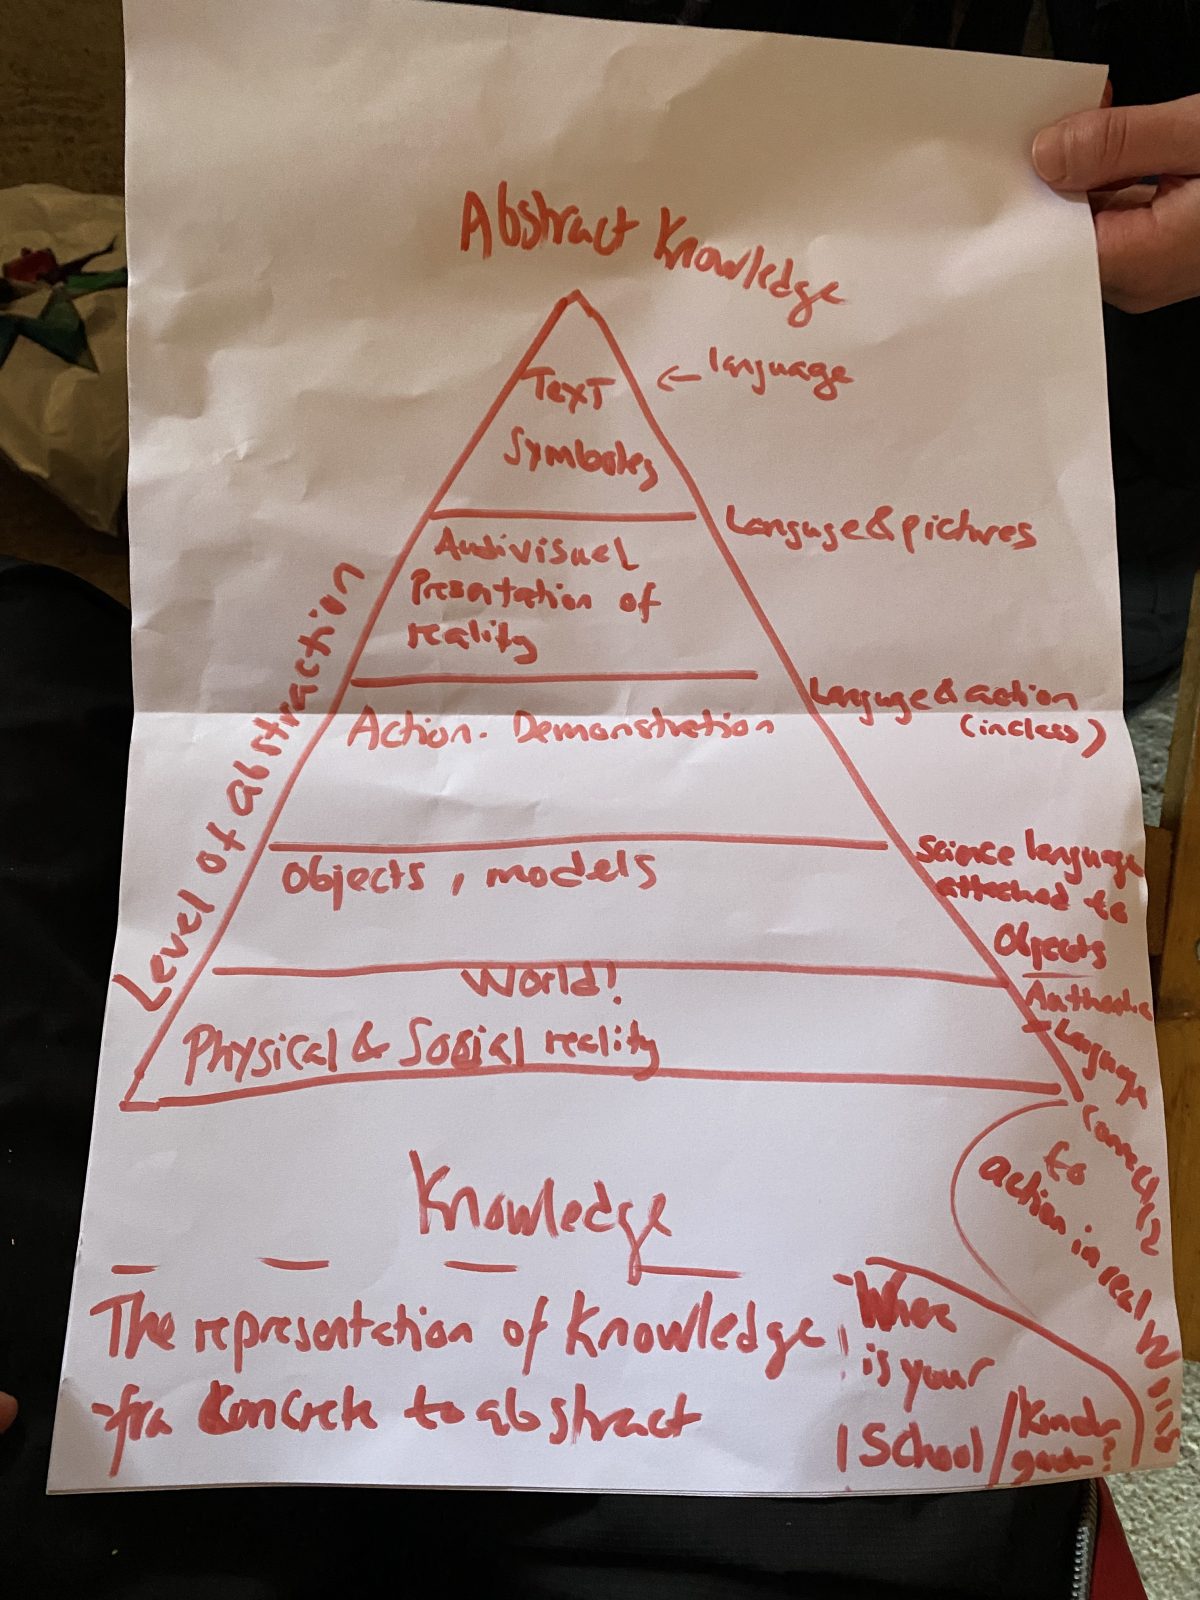 Abstract Knowledge
Text
← language
Symboles
Languge & pictures
Audivisuel
Presentation of
reality
Level of abstraction
Languge & action
(in class)
Action. Demonstration
Science language
attached to
Objects
Objects, models
World!
Physical & Social reality
Authentic
Language
Connected
to
action in real
World
Knowledge
The representation of Knowledge
-fra Concrete to abstract
Where
is your
School /